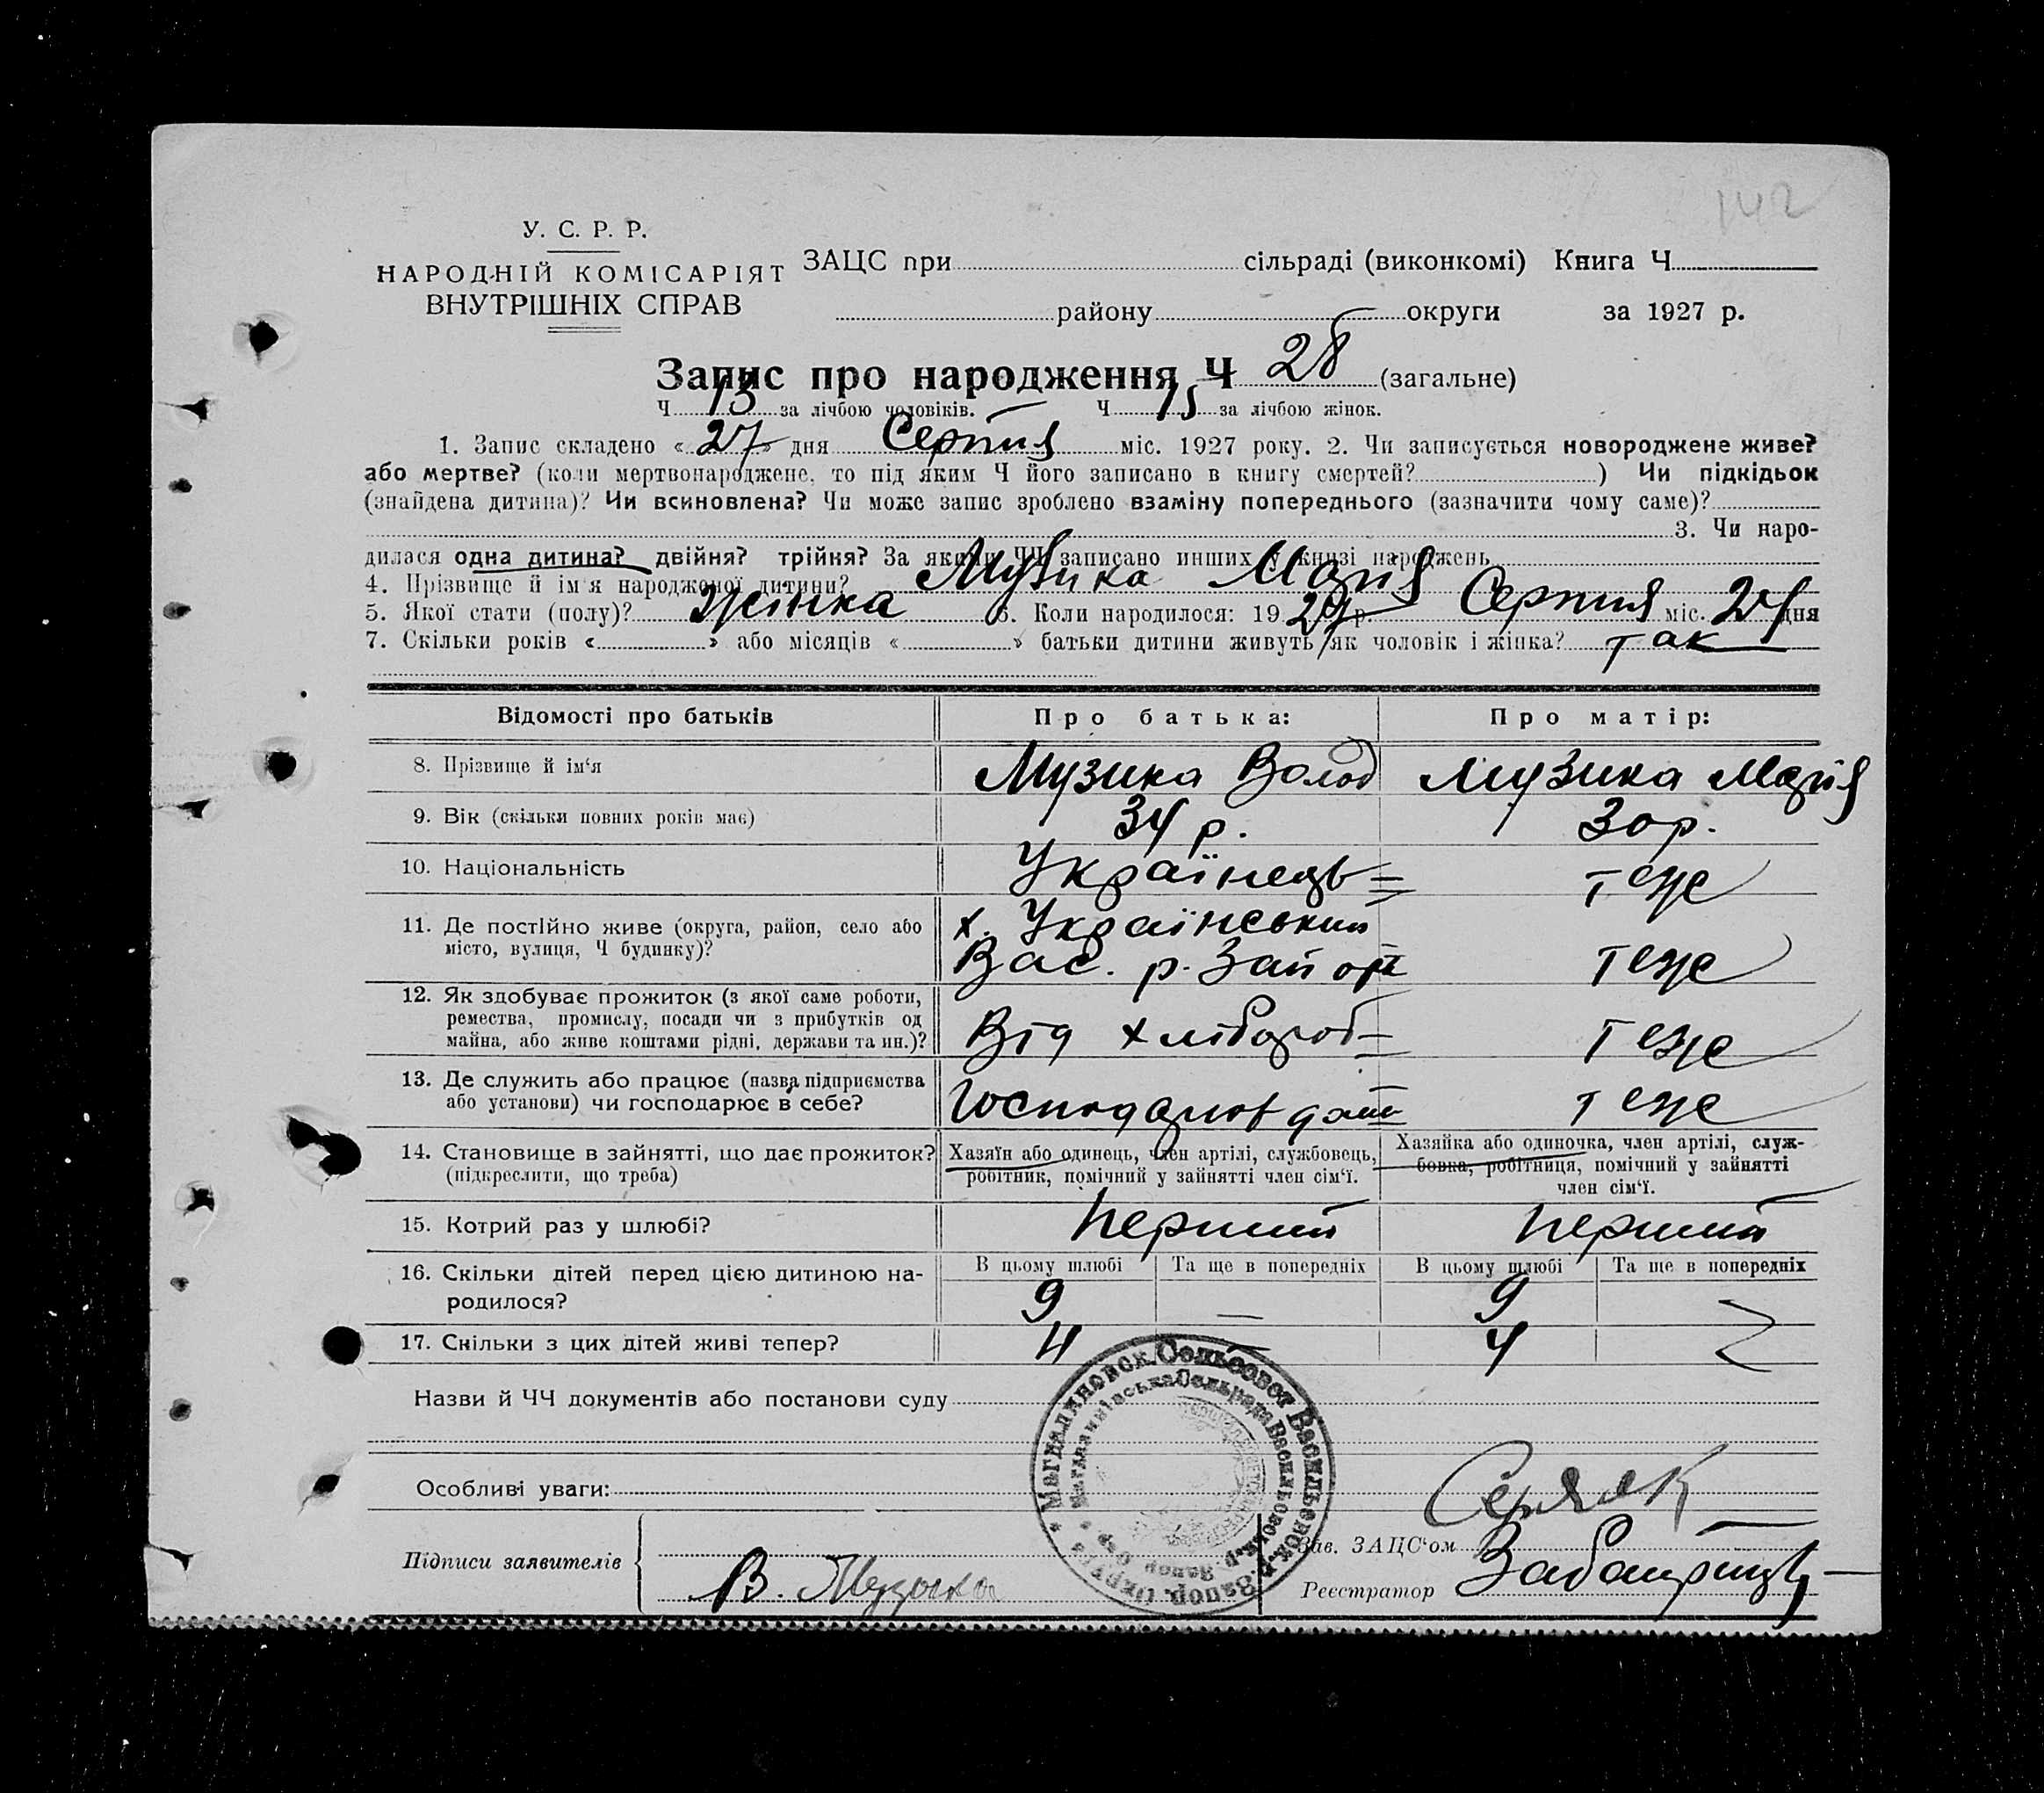 142
У. С. Р. Р.
НАРОДНІЙ КОМІСАРІЯТ
ВНУТРІШНІХ СПРАВ
ЗАЦС при сільраді (виконкомі) Книга Ч.
району округи за 1927 р.
Запис про народження Ч 28 (загальне)
Ч 13 за лічбою чоловіків. Ч 15 за лічбою жінок.
1. Запис складено « 27 » дня Серпня міс. 1927 року. 2. Чи записується новороджене живе?
або мертве? (коли мертвонароджене, то під яким Ч його записано в книгу смертей? ) Чи підкідьок
(знайдена дитина)? Чи всиновлена? Чи може запис зроблено взаміну попереднього (зазначити чому саме)?
3. Чи наро-
дилася одна дитина? двійня? трійня? За якими ЧЧ записано инших у книзі народжень
4. Прізвище й ім'я народженої дитини? Музика Марія
5. Якої стати (полу)? Жінка 6. Коли народилося: 19 27 р. Серпня міс. 24 дня
7. Скільки років « » або місяців « » батьки дитини живуть як чоловік і жінка? так
Відомості про батьків Про батька: Про матір:
8. Прізвище й ім'я Музика Волод Музика Марія
9. Вік (скільки повних років має) 34 р. 30 р.
10. Національність Українець теж
11. Де постійно живе (округа, район, село або х. Український
місто, вулиця, Ч будинку)? Вас. р. Запор теж
12. Як здобуває прожиток (з якої саме роботи,
ремества, промислу, посади чи з прибутків од
майна, або живе коштами рідні, держави та ин.)? Від хлібороб теж
13. Де служить або працює (назва підприємства
або установи) чи господарює в себе? теж
14. Становище в зайнятті, що дає прожиток? Хазяїн або одинець, член артілі, службовець, Хазяйка або одиночка, член артілі, служ-
(підкреслити, що треба) робітник, помічний у зайнятті член сім'ї. бовка, робітниця, помічний у зайнятті
член сім'ї.
15. Котрий раз у шлюбі? Перший Перший
16. Скільки дітей перед цією дитиною на- В цьому шлюбі Та ще в попередніх В цьому шлюбі Та ще в попередніх
родилося? 9 — 9
17. Скільки з цих дітей живі тепер? 4 — 4
Назви й ЧЧ документів або постанови суду
Магдалиновск. Сельсовет Васильевск. р. Запор. Округа
Магдалинівська Сельрада Васильовск. р. Запор. О-р.
Особливі уваги:
Підписи заявителів
Зав. ЗАЦС'ом
В. Музыка
Реєстратор